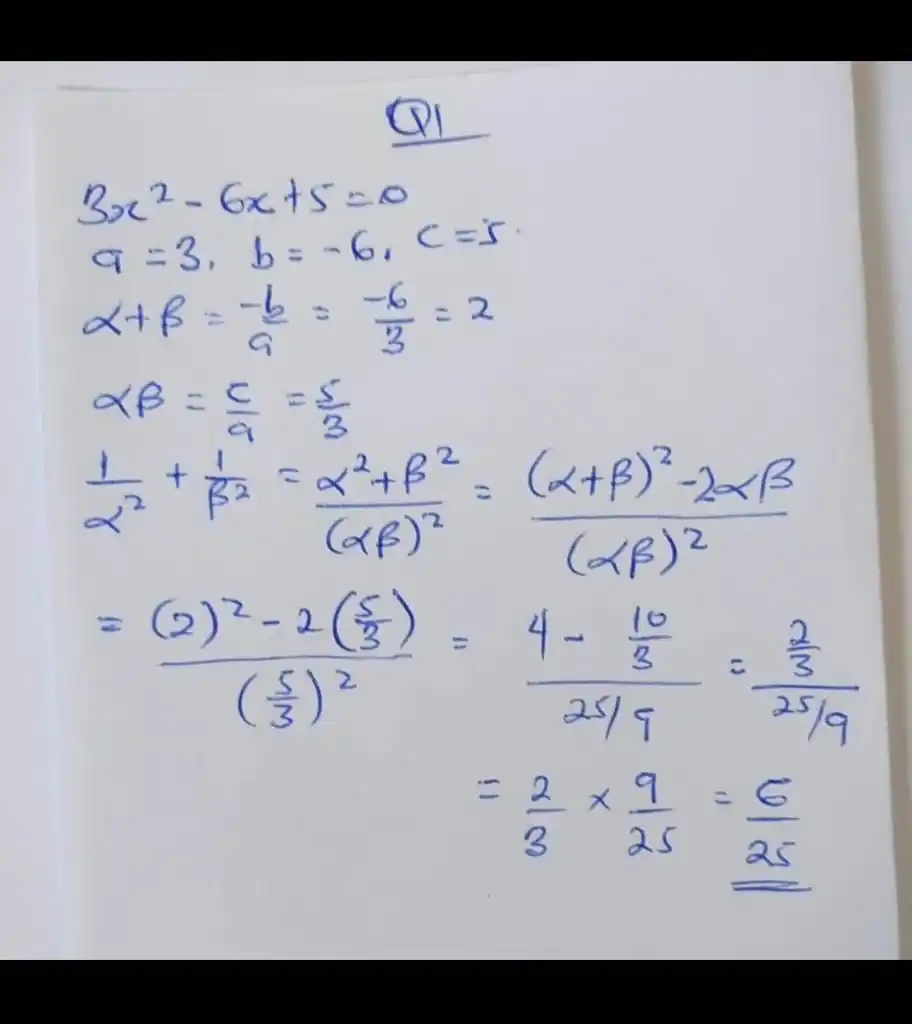 Q1
3x² - 6x + 5 = 0
a = 3, b = -6, c = 5.
α + β = -b/a = -6/3 = 2
αβ = c/a = 5/3
1/α² + 1/β² = (α² + β²)/(αβ)² = ((α + β)² - 2αβ)/(αβ)²
= ((2)² - 2(5/3))/(5/3)² = (4 - 10/3)/(25/9) = (2/3)/(25/9)
= 2/3 × 9/25 = 6/25